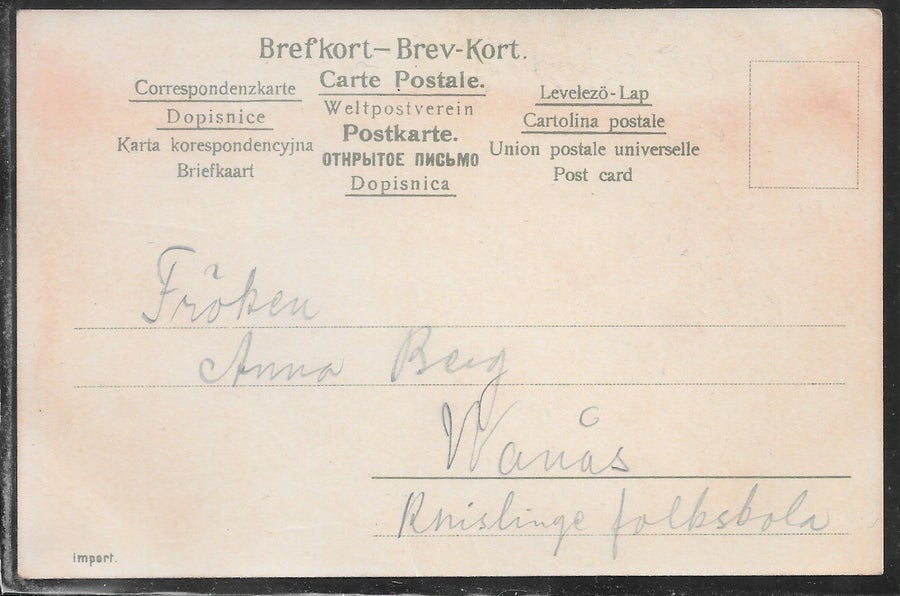 Brefkort – Brev-Kort.
Carte Postale.
Correspondenzkarte
Dopisnice
Karta korespondencyjna
Briefkaart
Weltpostverein
Postkarte.
ОТКРЫТОЕ ПИСЬМО
Dopisnica
Levelezö-Lap
Cartolina postale
Union postale universelle
Post card
Fröken
Anna Berg
Wanås
Knislinge folkskola
import.